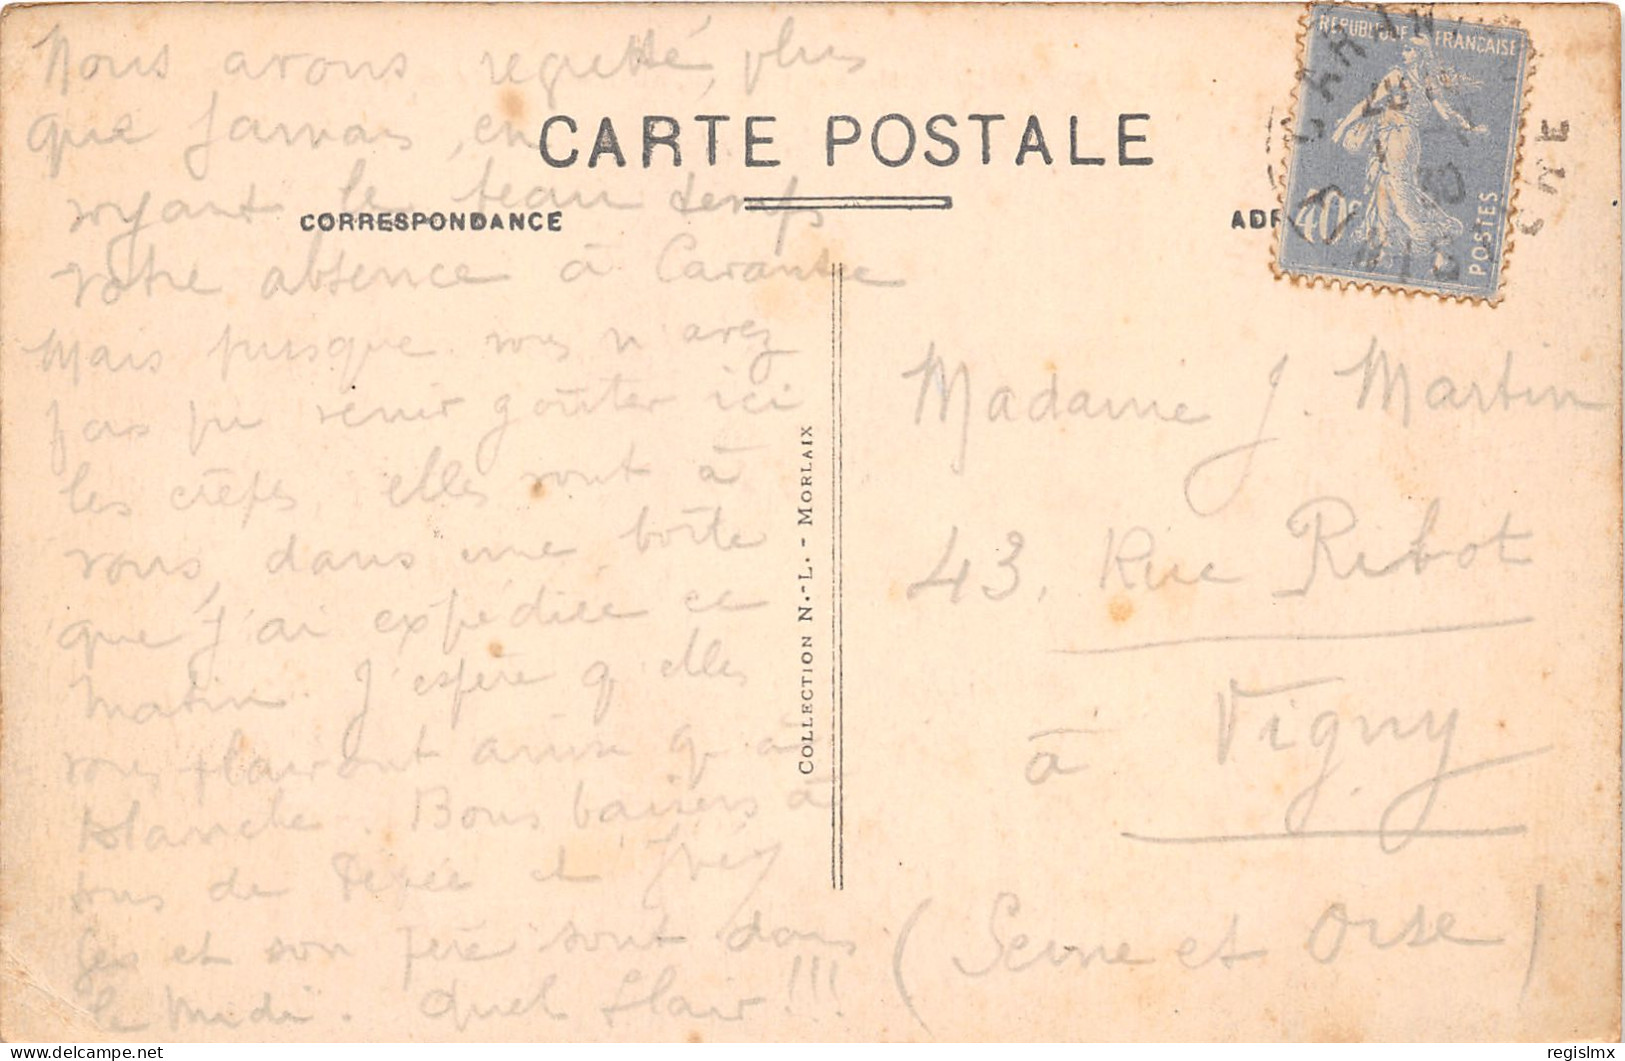 Nous avons regretté, plus
que jamais, en
voyant le beau temps
votre absence à Carantec
Mais puisque vous n'avez
pas pu venir goûter ici
les crêpes, elles vont à
vous, dans une boîte
que j'ai expédiée ce
matin. J'espère qu'elles
vous plairont ainsi qu'à
Blanche. Bons baisers à
tous de Renée et
et son père sont dans
le Midi. Quel flair !!!
CARTE POSTALE
CORRESPONDANCE
ADR
COLLECTION N.-L. - MORLAIX
REPUBLIQUE FRANÇAISE
40c
POSTES
Madame J. Martin
43, Rue Ribot
à Vigny
(Seine et Oise)
regislmx